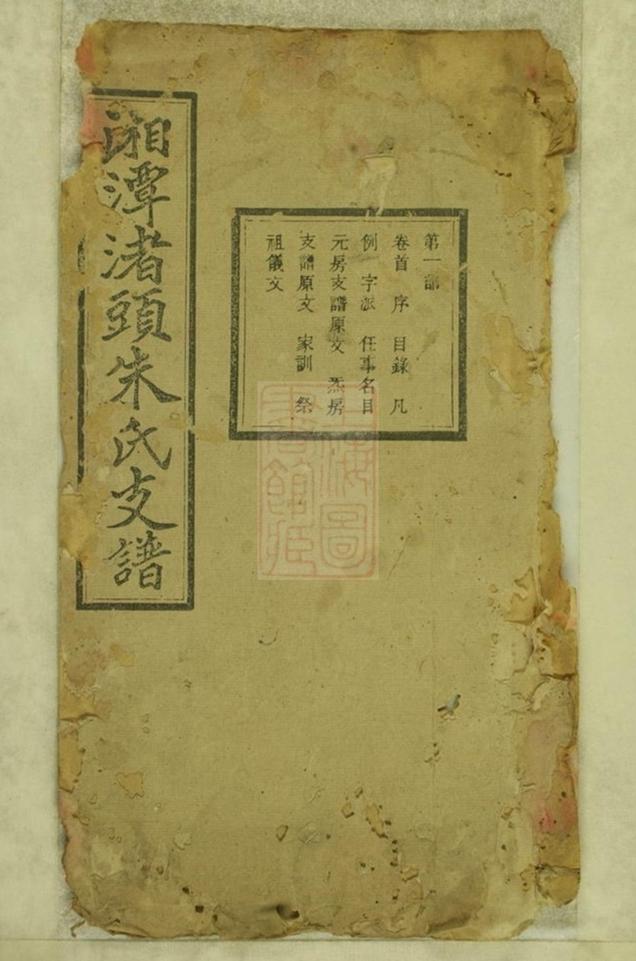 湘潭渚頭朱氏支譜
第一部
卷首　序　目錄　凡
例　字派　任事名目
元房支譜原文　炁房
支譜原文　家訓　祭
祖儀文
上海圖書館藏